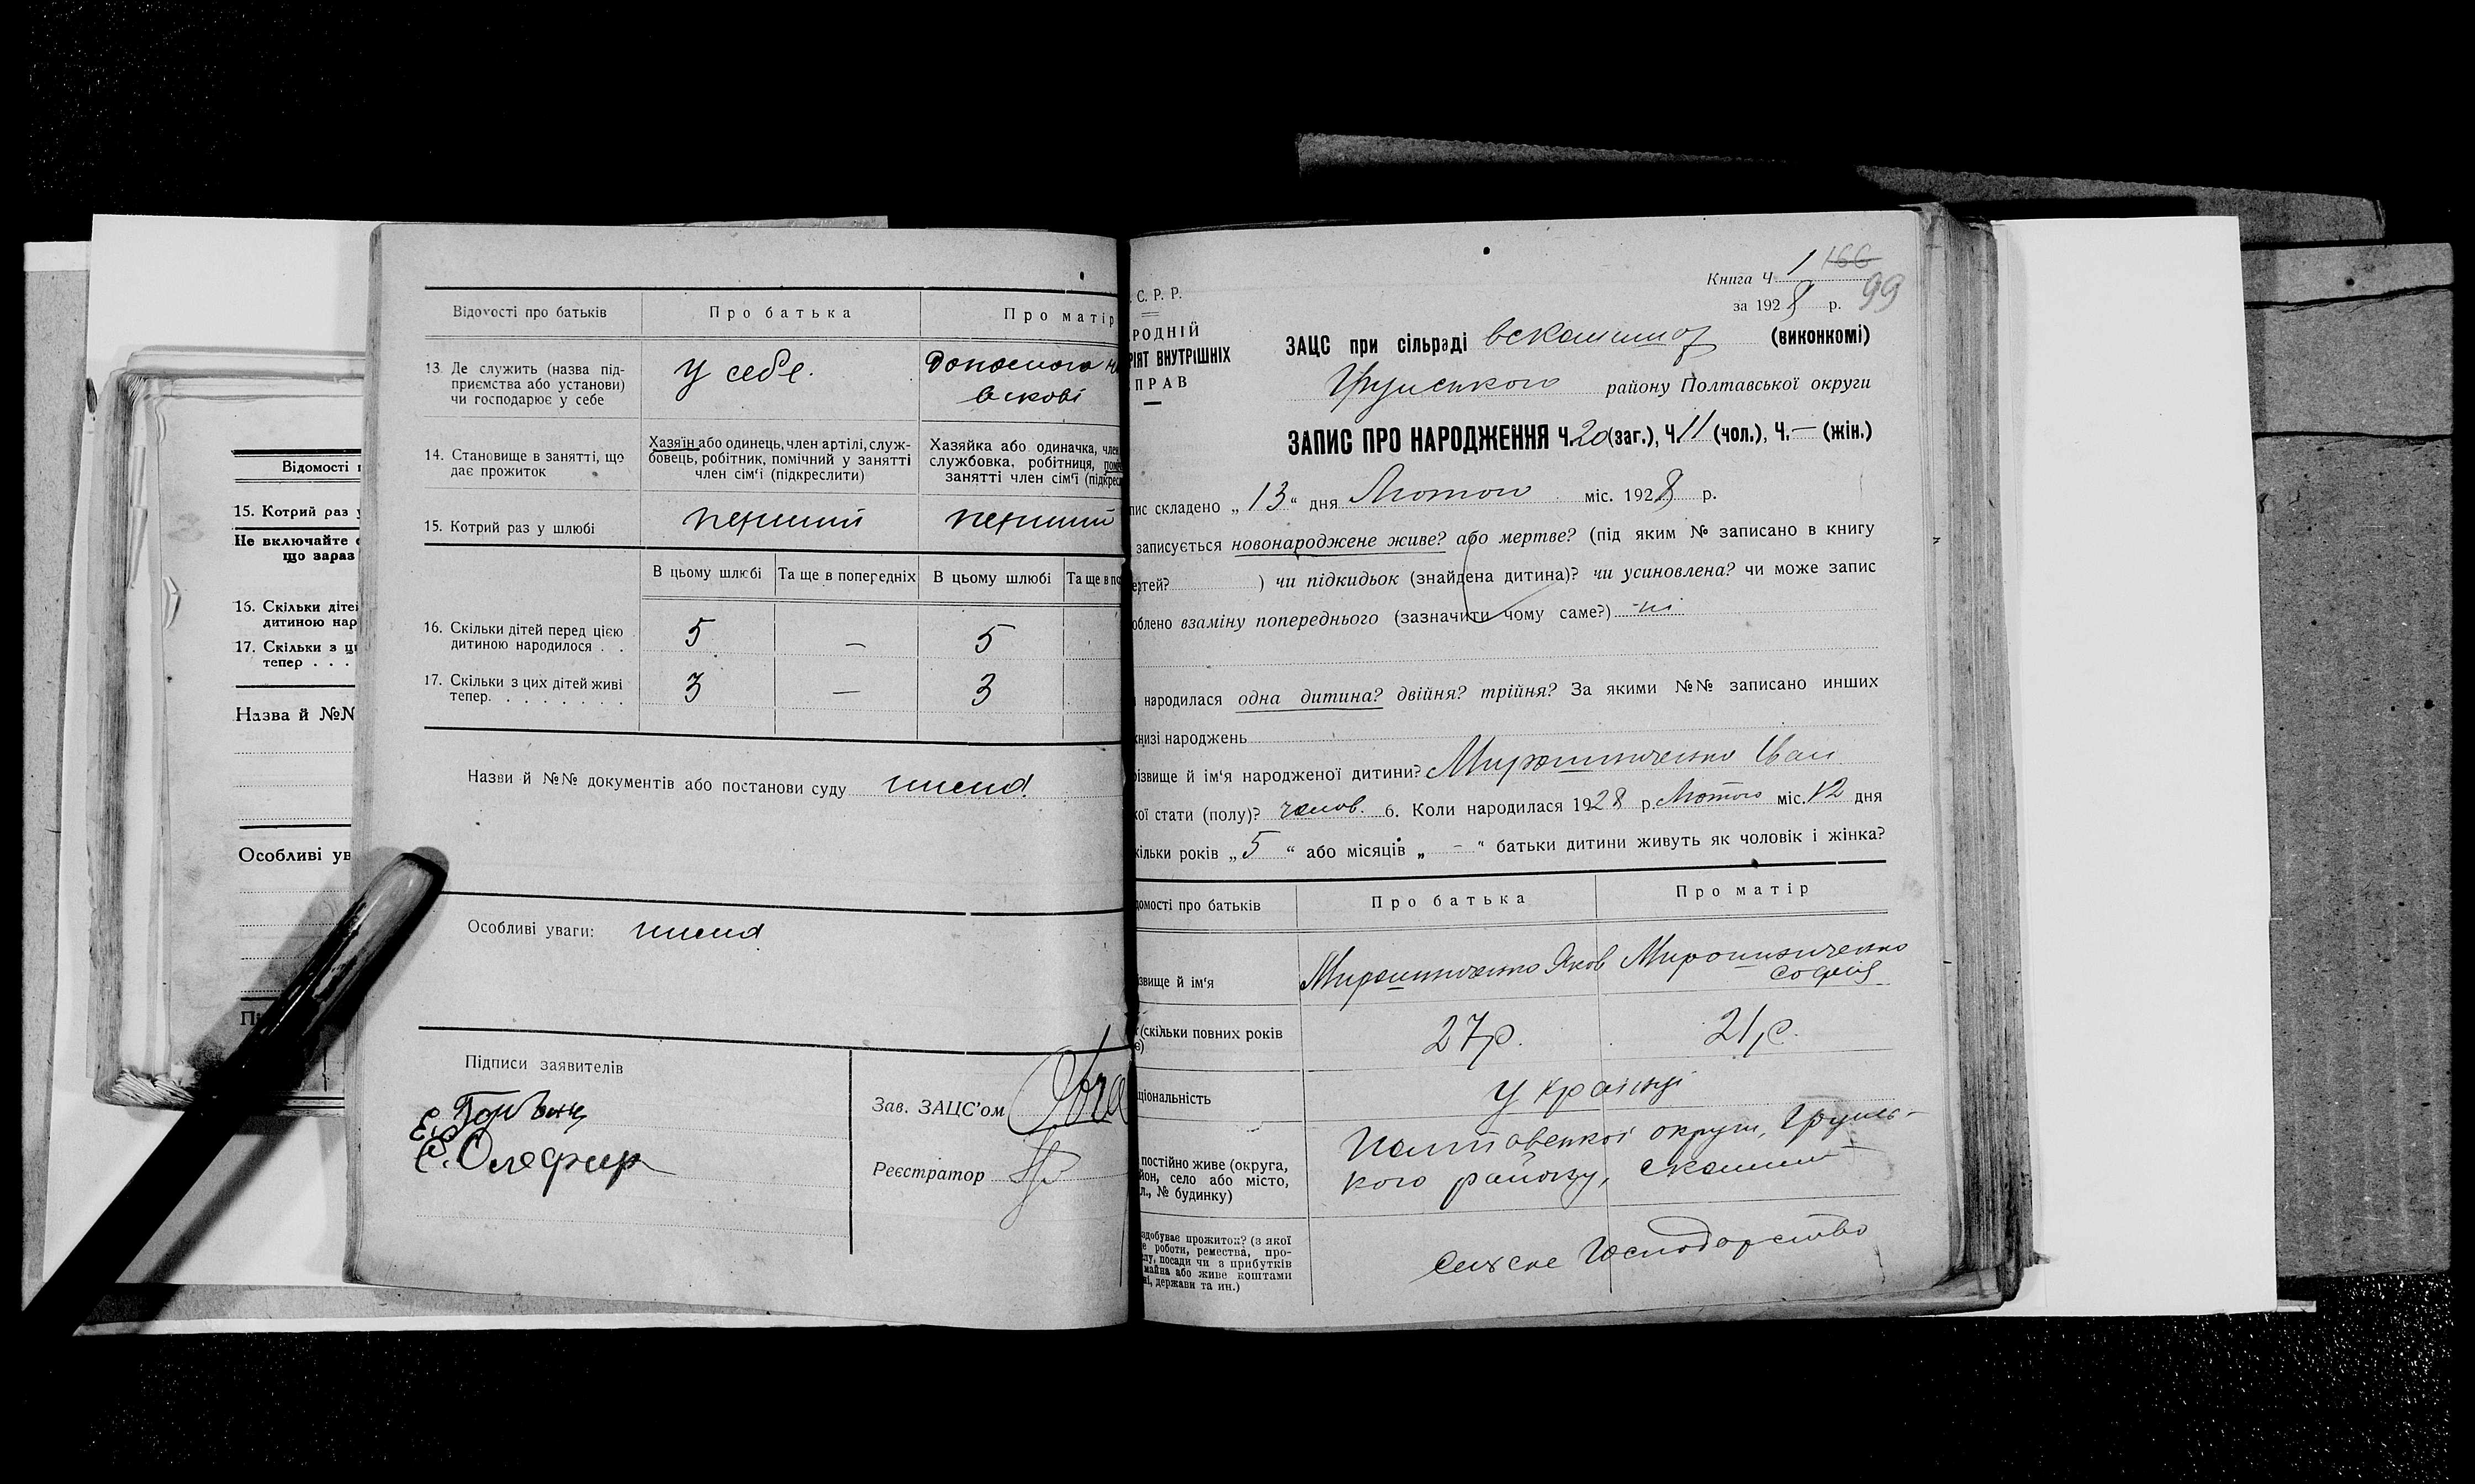 Відомості п
15. Котрий раз у
Не включайте
що зараз
16. Скільки діте
дитиною нар
17. Скільки з ц
тепер . . .
Назва й №№
Особливі ув
Відомості про батьків
Про батька
Про матір
13. Де служить (назва під-
приємства або установи)
чи господарює у себе
у себе.
допомога
14. Становище в занятті, що
дає прожиток
Хазяїн або одинець, член артілі, служ-
бовець, робітник, помічний у занятті
член сім'ї (підкреслити)
Хазяйка або одиначка, член
службовка, робітниця, пом
занятті член сім'ї (підкрес
15. Котрий раз у шлюбі
перший
перший
В цьому шлюбі
Та ще в попередніх
В цьому шлюбі
Та ще в по
16. Скільки дітей перед цією
дитиною народилося . .
5
—
5
17. Скільки з цих дітей живі
тепер. . . . . . . .
3
—
3
Назви й №№ документів або постанови суду нема
Особливі уваги: нема
Підписи заявителів
Є. Олефир
Зав. ЗАЦС'ом
Реєстратор
. С. Р. Р.
РОДНІЙ
РІЯТ ВНУТРІШНІХ
ПРАВ
Книга Ч 1 166
99
за 1928 р.
ЗАЦС при сільраді (виконкомі)
Грунського району Полтавської округи
ЗАПИС ПРО НАРОДЖЕННЯ Ч. 20 (заг.), Ч. 11 (чол.), Ч. — (жін.)
пис складено „13“ дня Лютого міс. 1928 р.
записується новонароджене живе? або мертве? (під яким № записано в книгу
ертей? ) чи підкидьок (знайдена дитина)? чи усиновлена? чи може запис
облено взаміну попереднього (зазначити чому саме?) ні
народилася одна дитина? двійня? трійня? За якими №№ записано инших
книзі народжень
різвище й ім'я народженої дитини? Мирошниченко Іван
кої стати (полу)? чолов. 6. Коли народилася 1928 р. Лютого міс. 12 дня
кільки років „5“ або місяців „-“ батьки дитини живуть як чоловік і жінка?
домості про батьків
Про батька
Про матір
звище й ім'я
Мирошниченко Яков
Мирошниченко
софия
(скільки повних років
є)
27р.
21р.
ціональність
Українці
постійно живе (округа,
йон, село або місто,
л., № будинку)
Полтавської округи, Грунсь-
кого району,
здобуває прожиток? (з якої
е роботи, ремества, про-
лу, посади чи з прибутків
майна або живе коштами
ні, держави та ин.)
сельске господарство